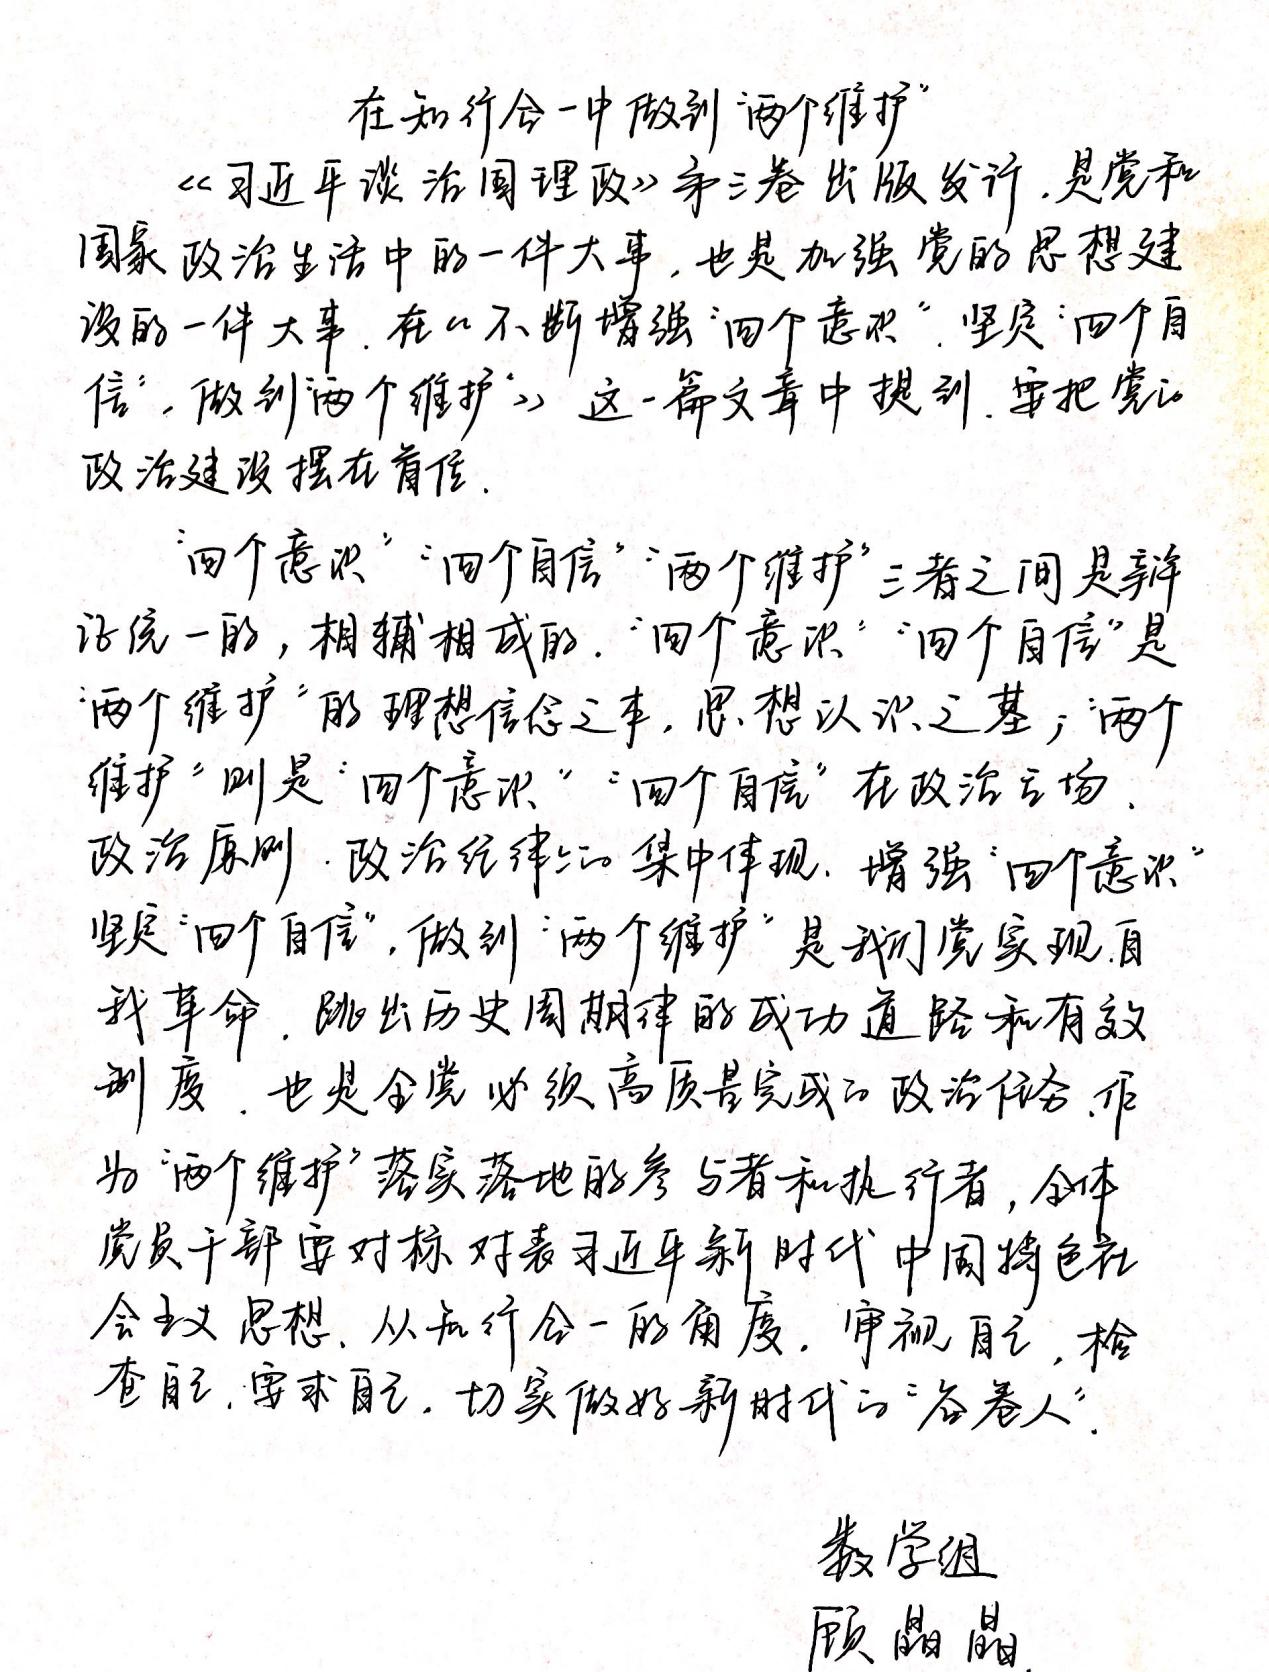 在知行合一中做到“两个维护”
《习近平谈治国理政》第三卷出版发行，是党和
国家政治生活中的一件大事，也是加强党的思想建
设的一件大事。在《不断增强“四个意识”、坚定“四个自
信”，做到“两个维护”》这一篇文章中提到，要把党的
政治建设摆在首位。
“四个意识”“四个自信”“两个维护”三者之间是辩
证统一的，相辅相成的。“四个意识”“四个自信”是
“两个维护”的理想信念之本，思想认识之基；“两个
维护”则是“四个意识”“四个自信”在政治立场、
政治原则、政治纪律上的集中体现。增强“四个意识”
坚定“四个自信”，做到“两个维护”是我们党实现自
我革命、跳出历史周期律的成功道路和有效
制度，也是全党必须高质量完成的政治任务。作
为“两个维护”落实落地的参与者和执行者，全体
党员干部要对标对表习近平新时代中国特色社
会主义思想，从知行合一的角度，审视自己，检
查自己，要求自己，切实做好新时代的“答卷人”。
数学组
顾晶晶